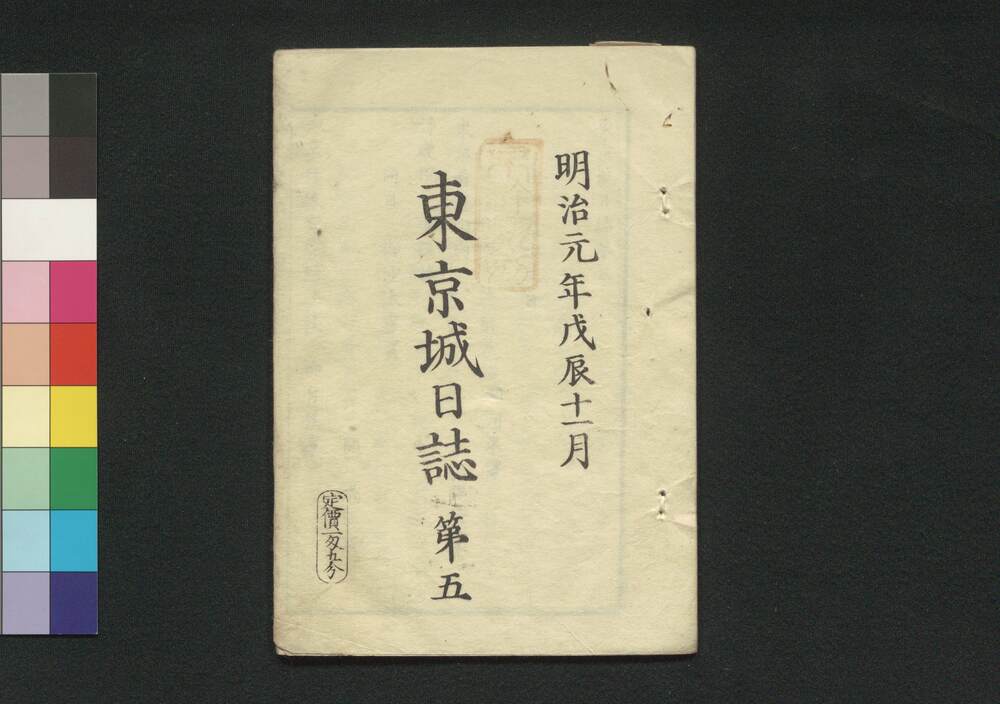 明治元年戊辰十一月
東京城日誌 第五
定價一匁九分